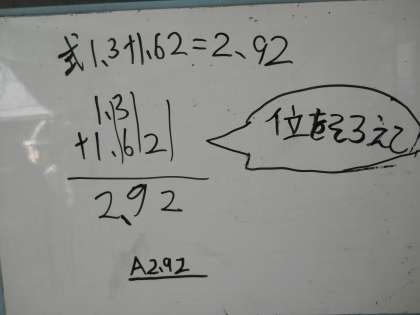 式1.3+1.62=2.92
1.3
+1.62
2.92
位をそろえて
A2.92